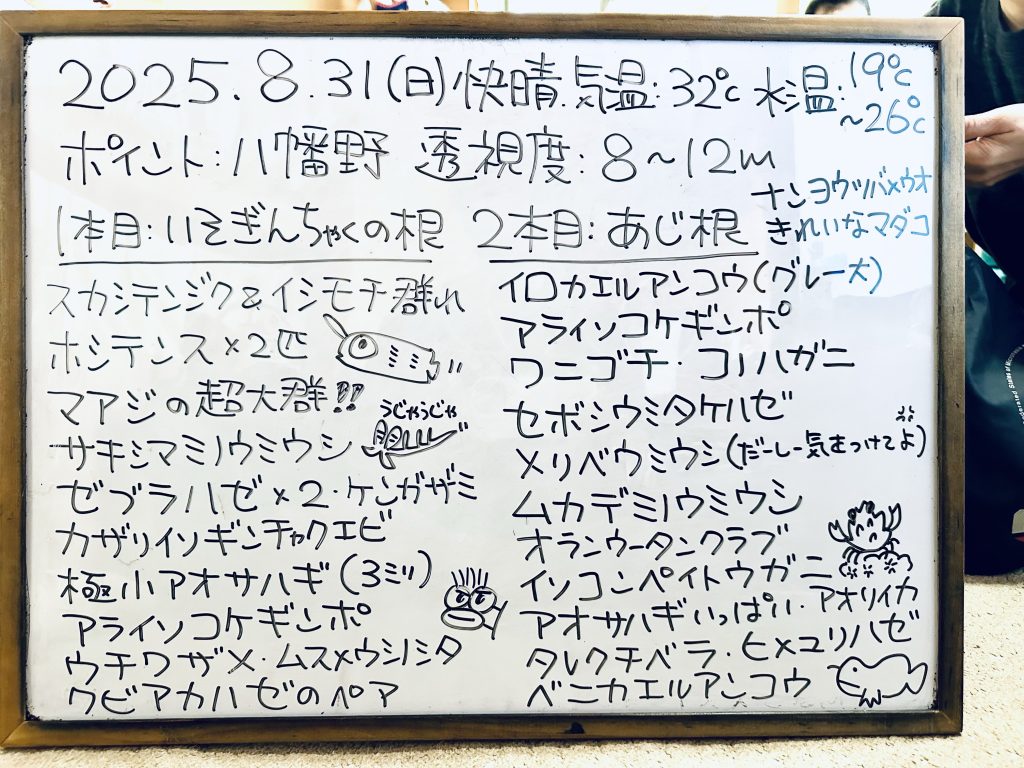 2025.8.31(日)快晴.気温:32℃ 水温:19℃
~26℃
ポイント:八幡野 透視度:8~12m
1本目:いそぎんちゃくの根
スカシテンジク&イシモチ群れ
ホシテンス×2匹
マアジの超大群!!
うじゃうじゃ
サキシマミノウミウシ
ゼブラハゼ×2・ケンガザミ
カザリイソギンチャクエビ
極小アオサハギ(3ミリ)
アライソコケギンポ
ウチワザメ・ムスメウシノシタ
クビアカハゼのペア
2本目:あじ根
ナンヨウツバメウオ
きれいなマダコ
イロカエルアンコウ(グレー大)
アライソコケギンポ
ワニゴチ・コノハガニ
セボシウミタケハゼ
メリベウミウシ(だーしー気をつけてよ)
ムカデミノウミウシ
オランウータンクラブ
イソコンペイトウガニ
アオサハギいっぱい・アオリイカ
タレクチベラ・ヒメユリハゼ
ベニカエルアンコウ